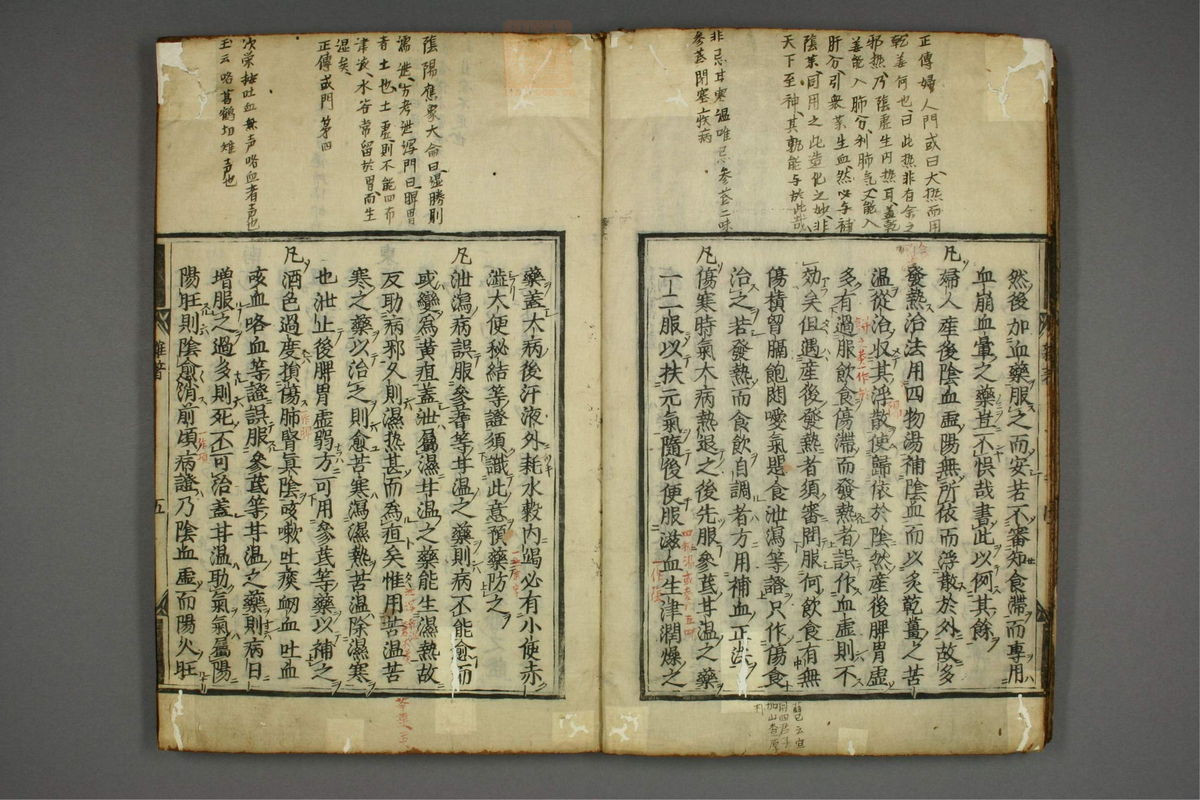 正傳婦人門或曰大熱而用
乾姜何也曰此熱非有余之
邪熱乃陰虛生内熱耳蓋乾
姜能入肺分利肺气又能入
肝分引衆藥生血然必与補
陰藥同用之此造化之妙非
天下至神其孰能与於此哉
非忌甘寒温唯忌參芪二味
參芪閉塞疾病
然後加血藥服之而安若不審知食滯而專用
血崩血暈之藥豈不悞哉書此以例其餘
凡婦人産後陰血虛陽無所依而浮散於外故多
發熱治法用四物湯補陰血而以炙乾薑之苦
温從治收其浮散使歸依於陰然産後脾胃虛
多有過服飲食傷滯而發熱者誤作血虛則不
効矣但遇産後發熱者須審問服何飲食有無
傷積胷膈飽悶噯氣惡食泄瀉等證只作傷食
治之若發熱而食飲自調者方用補血正法
凡傷寒時氣大病熱退之後先服參芪甘温之藥
一二服以扶元氣隨後便服滋血生津潤燥之
陰陽應象大侖曰湿勝則
濡泄方考泄瀉門曰脾胃
者土也土虛則不能四布
津液水谷常留於胃而生
湿矣
正傳或門第四
吐血無声咯血者声也
玉云咯
藥蓋大病後汗液外耗水穀内竭必有小便赤
澁大便秘結等證須識此意預藥防之
凡泄瀉病誤服參芪等甘温之藥則病不能愈而
或變爲黄疸蓋泄屬濕甘温之藥能生濕熱故
反助病邪久則濕熱甚而為疸矣惟用苦温苦
寒之藥以治之則愈苦寒瀉濕熱苦温除濕寒
也泄止後脾胃虛弱方可用參芪等藥以補之
凡酒色過度損傷肺腎眞陰咳嗽吐痰衂血吐血
咳血咯血等證誤服參芪等甘温之藥則病日
増服之過多則死不可治蓋甘温助氣氣屬陽
陽旺則陰愈消前項病證乃陰血虛而陽火旺
雜著
五